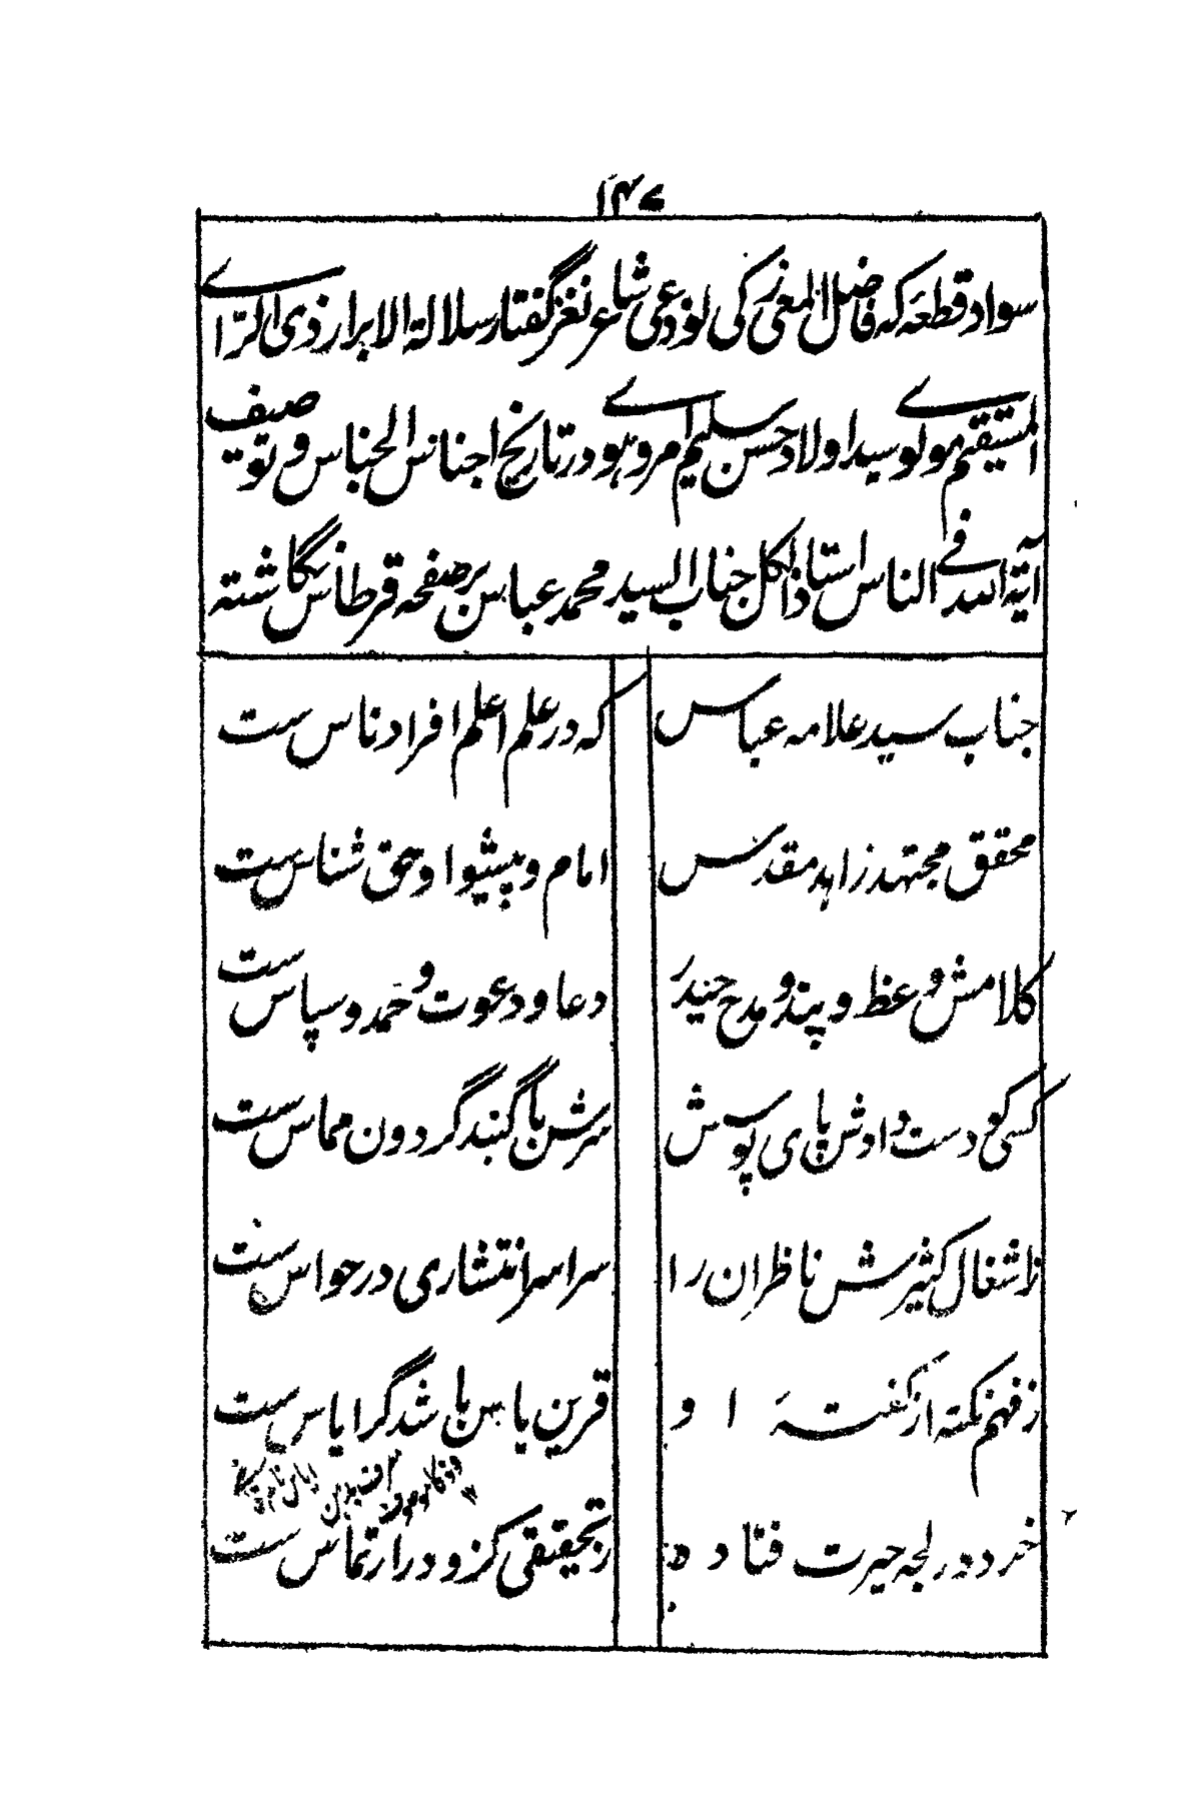 ۱۴۷
سواد قطعهٔ که فاضل المعی زکی لوذعی شاعر نغز گفتار سلالة الابرار ذی الرّاے
المستقیم مولوے سید اولاد حسن سلیم امروہوے در تاریخ اجناس الجناس و توصیف
آیة الله فے الناس استاذ الکل جناب السید محمد عباس بر صفحه قرطاس نگاشته
جناب سید علامه عباس
که در علم اعلم افراد ناس ست
محقق مجتهد زاهد مقدس
امام و پیشوا و حق شناس ست
کلامش وعظ و پند و مدح حیدر
دعا و دعوت و حمد و سپاس ست
کسی کو دست دادش پای پوسش
سرش با گنبد گردون مماس ست
ز اشغال کثیرش ناظران را
سراسر انتشاری در حواس ست
ز فهم نکته از گفتهٔ او
قرین یاس باشد گر ایاس ست
خرد در لجه حیرت فتاده
ز تحقیقی کزو در ارتماس ست